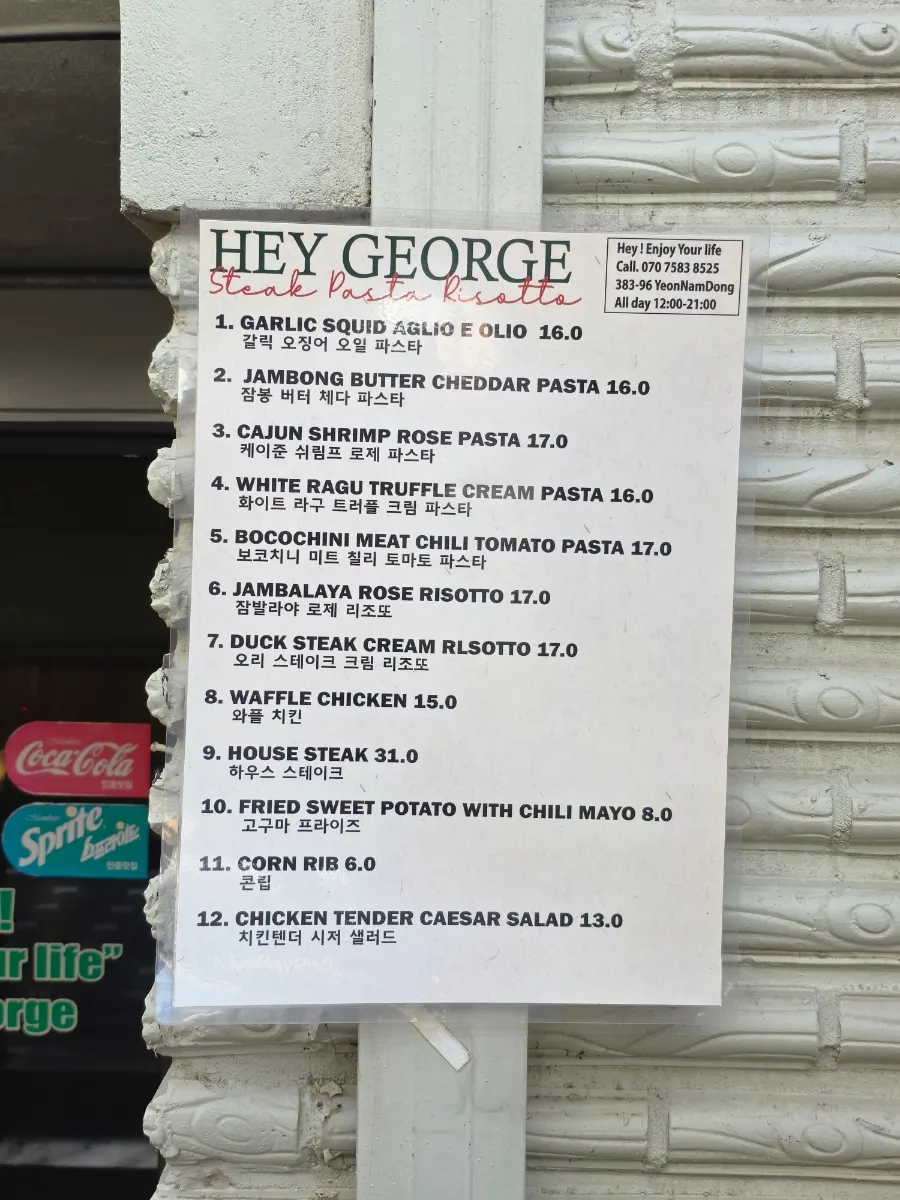 HEY GEORGE
Steak Pasta Risotto
Hey ! Enjoy Your life
Call. 070 7583 8525
383-96 YeonNamDong
All day 12:00-21:00
1. GARLIC SQUID AGLIO E OLIO 16.0
갈릭 오징어 오일 파스타
2. JAMBONG BUTTER CHEDDAR PASTA 16.0
잠봉 버터 체다 파스타
3. CAJUN SHRIMP ROSE PASTA 17.0
케이준 쉬림프 로제 파스타
4. WHITE RAGU TRUFFLE CREAM PASTA 16.0
화이트 라구 트러플 크림 파스타
5. BOCOCHINI MEAT CHILI TOMATO PASTA 17.0
보코치니 미트 칠리 토마토 파스타
6. JAMBALAYA ROSE RISOTTO 17.0
잠발라야 로제 리조또
7. DUCK STEAK CREAM RLSOTTO 17.0
오리 스테이크 크림 리조또
8. WAFFLE CHICKEN 15.0
와플 치킨
9. HOUSE STEAK 31.0
하우스 스테이크
10. FRIED SWEET POTATO WITH CHILI MAYO 8.0
고구마 프라이즈
11. CORN RIB 6.0
콘립
12. CHICKEN TENDER CAESAR SALAD 13.0
치킨텐더 시저 샐러드
Coca-Cola
인증맛집
Member
Sprite 스프라이트
인증맛집
!
ur life”
orge